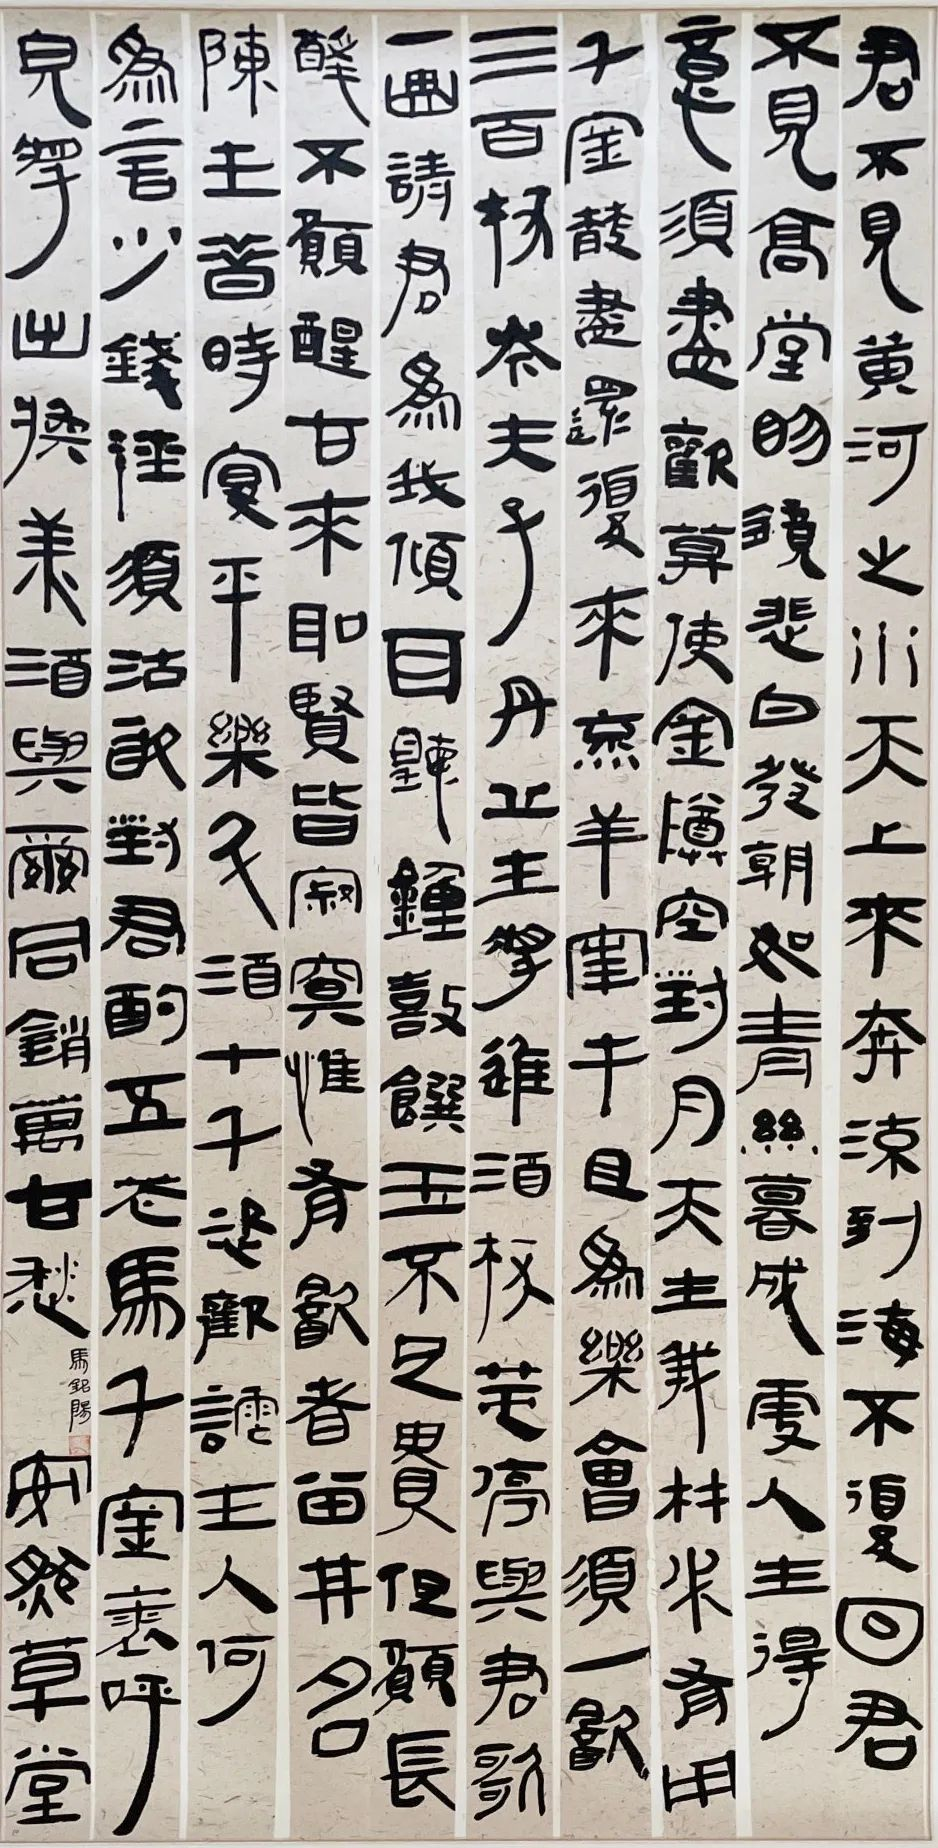 君不見黃河之川天上來奔涼到海不復回君
不見高堂明鏡悲白發朝如青絲暮成雪人生得
意須盡歡莫使金樽空對月天生我材必有用
千金散盡還復來烹羊宰牛且為樂會須一飲
三百杯岑夫子丹丘生將進酒杯莫停與君歌
一曲詩君為我傾耳聽鐘鼓饌玉不足貴但願長
醉不願醒古來聖賢皆寂寞惟有飲者留其名
陳王昔時宴平樂久酒十千恣歡謔主人何
為言少錢徑須沽取對君酌五花馬千金裘呼
兒將出換美酒與爾同銷萬古愁
馬銘陽
安然草堂